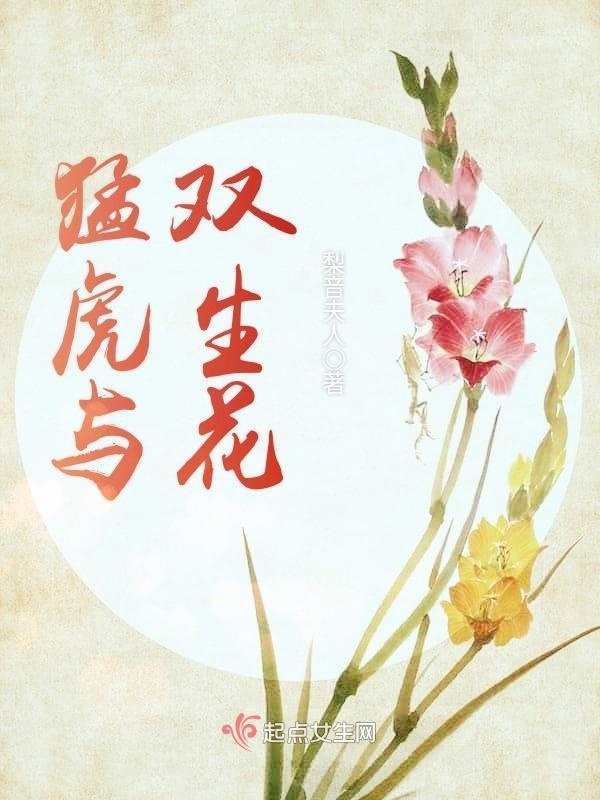 猛虎与
双生花
梨音夫人〇著
起点女生网